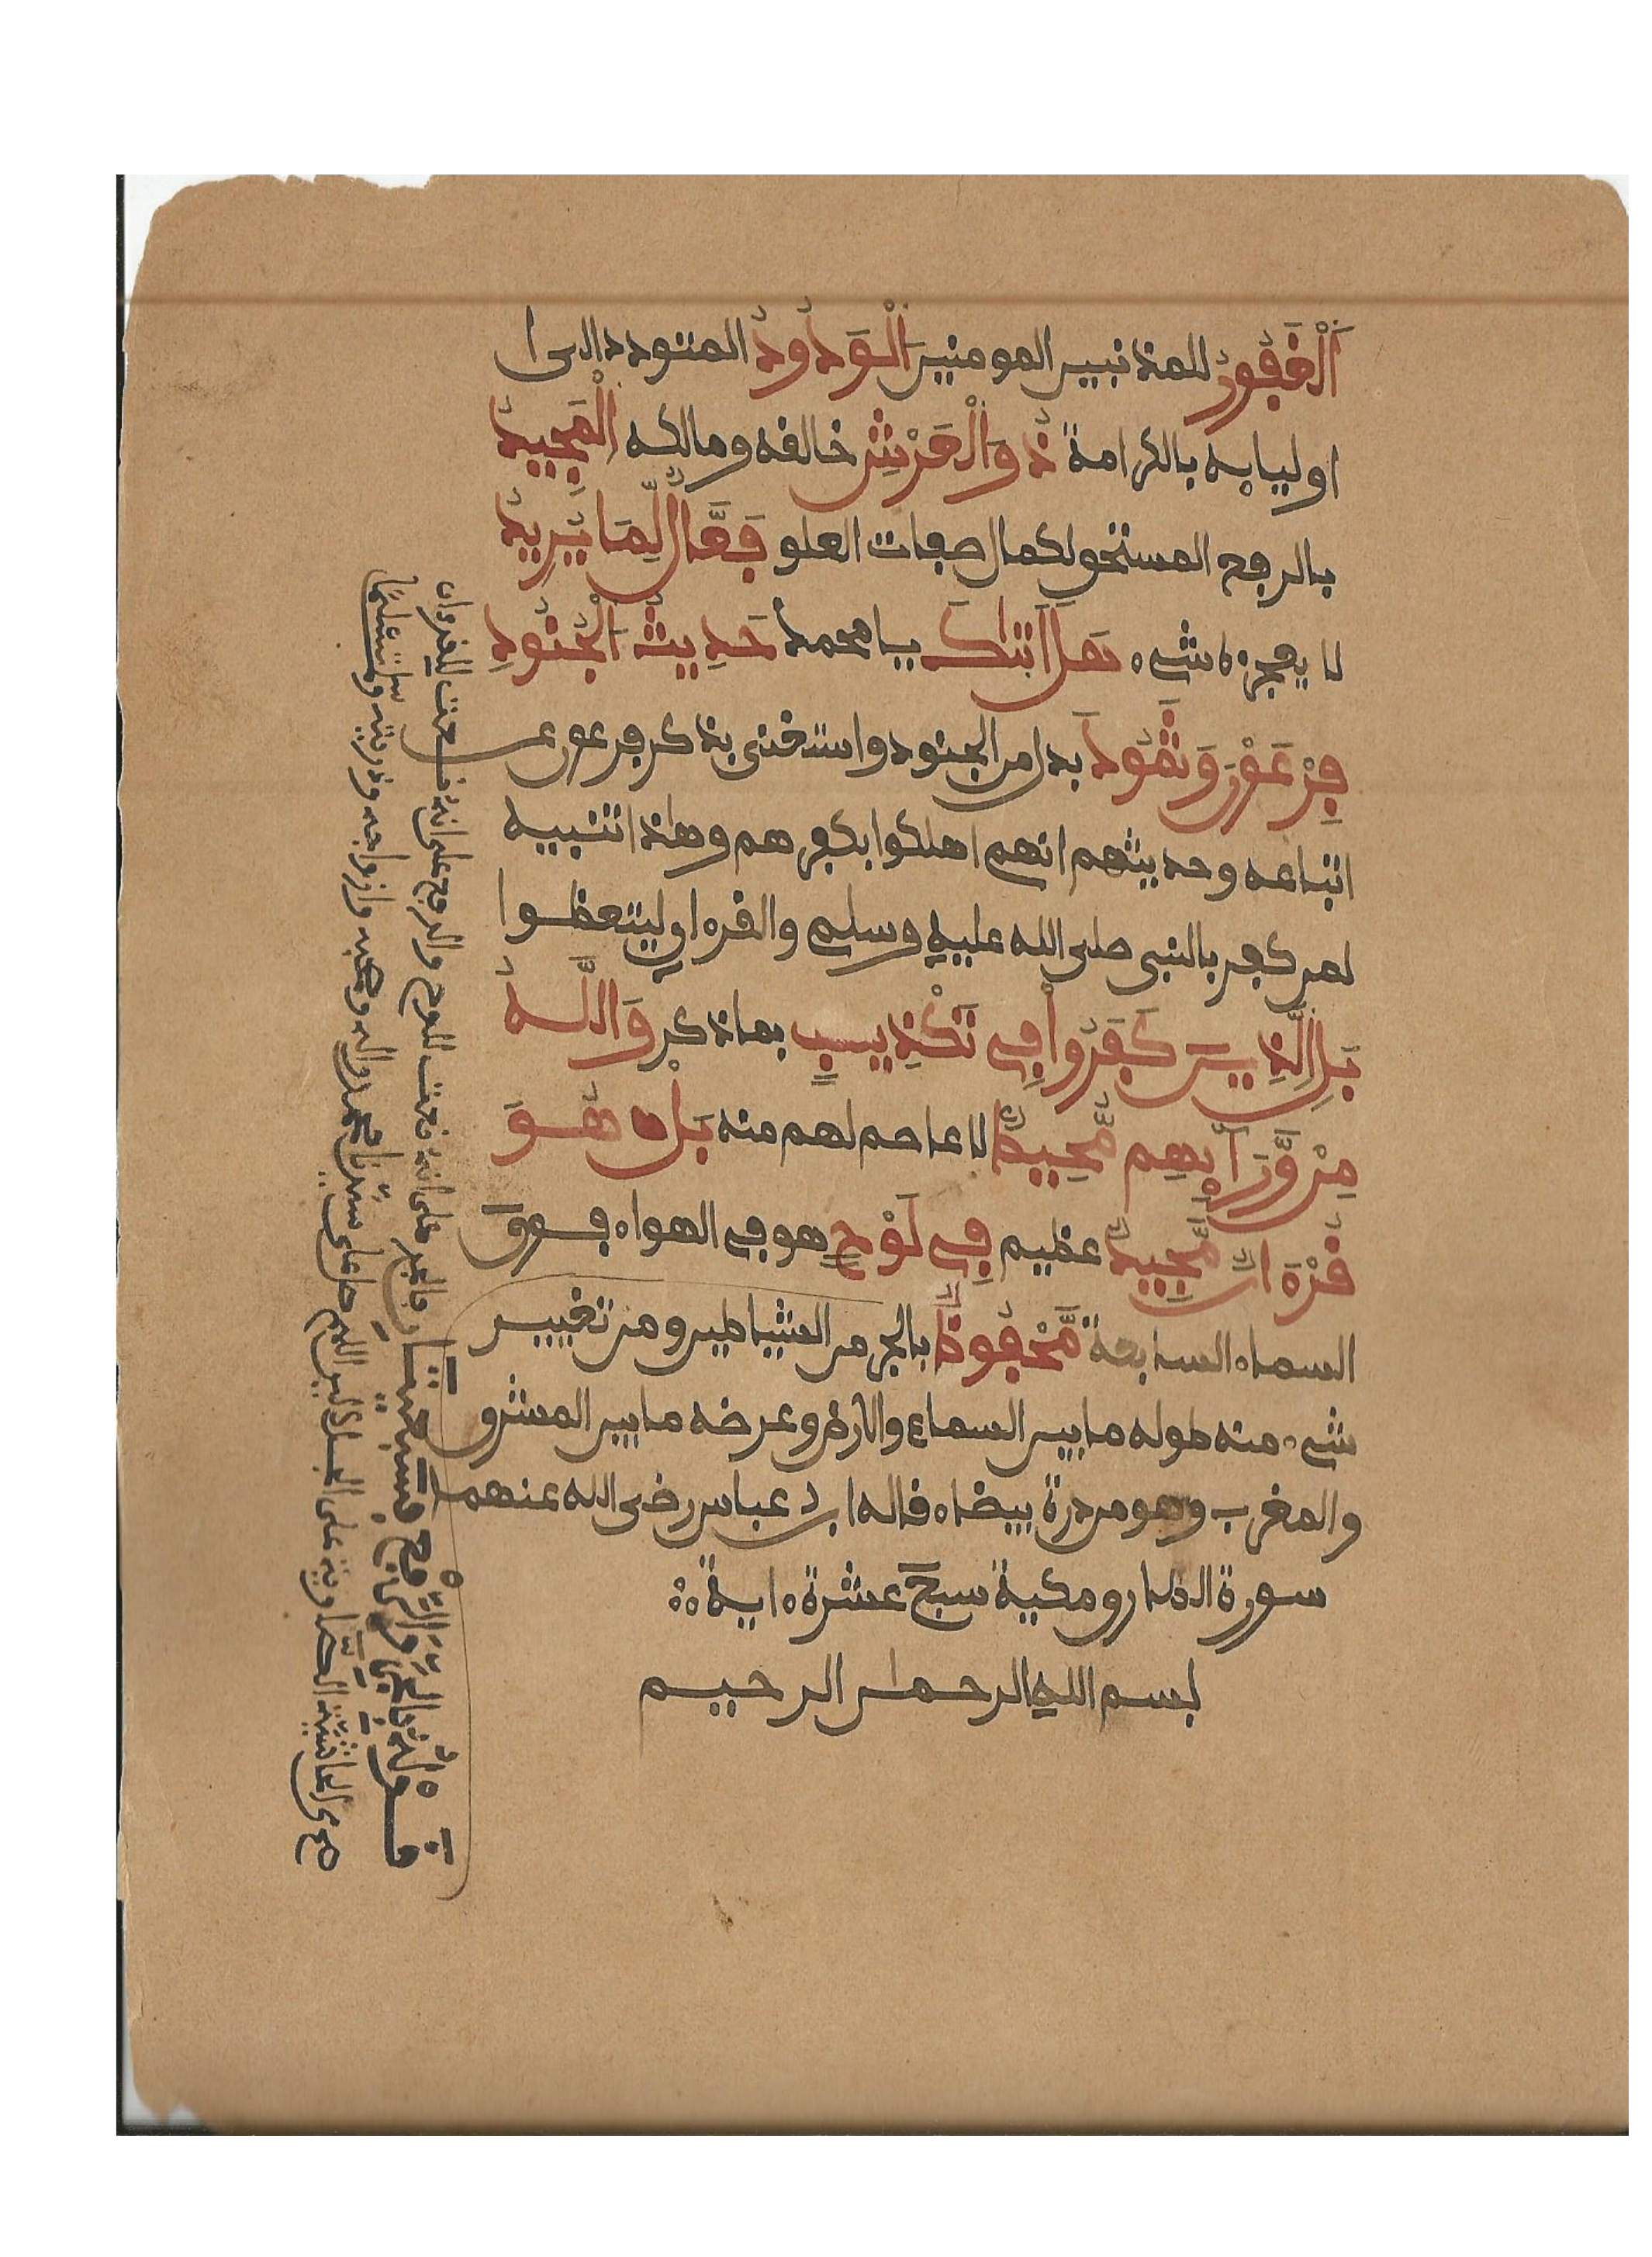 اَلْغَفُورُ للمذنبين المومنين اَلْوَدُودُ المتودد الى ا
اوليايه بالكرامة ذُو اَلْعَرْشِ خالقه ومالكه اَلْمَجِيدُ
بالرفع المستحق لكمال صفات العلو فَعَّالٌ لِّمَا يُرِيدُ
لا يعجزه شيء هَلَ اَتٰىكَ يا محمد حَدِيثُ اَلْجُنُودِ
فِرْعَوْنَ وَثَمُودَ بدل من الجنود واستغنى بذكر فرعون عن
اتباعه وحديثهم انهم اهلكوا بكفرهم وهاذا تنبيه
لمن كفر بالنبي صلى الله عليه وسلم والقرءان ليتعظوا
بَلِ اِلذِينَ كَفَرُوا فِي تَكْذِيبٍ بما ذكر وَاللَّهُ
مِنْ وَّرَآئِهِم مُّحِيطٌ لا عاصم لهم منه بَلْ هُوَ
قُرْءَانٌ مَّجِيدٌ عظيم فِي لَوْحٍ هو في الهواء فوق ا
السماء السابعة مَّحْفُوظٌ بالجر من الشياطين ومن تغيير
شيء منه طوله ما بين السماء والارض وعرضه ما بين المشرق
والمغرب وهو من درة بيضاء قاله ابن عباس رضى الله عنهما
سورة الطارق مكية سبع عشرة ءاية
بسم الله الرحمان الرحيم
قَوْلُهُ بِالْجَرِّ وَالرَّفْعِ سَبْعِيَّتَانِ فالجر على انه نعت للوح والرفع على انه نعت للقرءان
صوى الحاشية الصاوية على الجلالين اللهم صل على سيدنا محمد واله وصحبه وازواجه وذريته وسلم تسليما